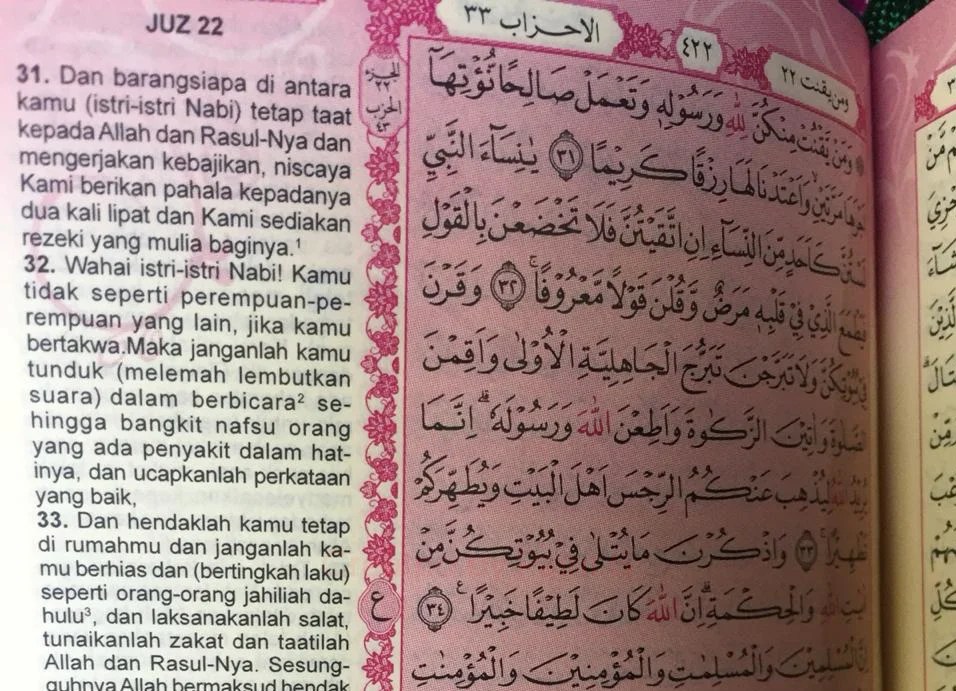 JUZ 22
31. Dan barangsiapa di antara
kamu (istri-istri Nabi) tetap taat
kepada Allah dan Rasul-Nya dan
mengerjakan kebajikan, niscaya
Kami berikan pahala kepadanya
dua kali lipat dan Kami sediakan
rezeki yang mulia baginya.¹
32. Wahai istri-istri Nabi! Kamu
tidak seperti perempuan-pe-
rempuan yang lain, jika kamu
bertakwa.Maka janganlah kamu
tunduk (melemah lembutkan
suara) dalam berbicara² se-
hingga bangkit nafsu orang
yang ada penyakit dalam hat-
inya, dan ucapkanlah perkataan
yang baik,
33. Dan hendaklah kamu tetap
di rumahmu dan janganlah ka-
mu berhias dan (bertingkah laku)
seperti orang-orang jahiliah da-
hulu³, dan laksanakanlah salat,
tunaikanlah zakat dan taatilah
Allah dan Rasul-Nya. Sesung-
guhnya Allah bermaksud hendak
الاحزاب ٣٣
٤٢٢
ومن يقنت ٢٢
الجزء
٢٢
الحزب
٤٣
وَمَنْ يَّقْنُتْ مِنْكُنَّ لِلّٰهِ وَرَسُوْلِهٖ وَتَعْمَلْ صَالِحًا نُّؤْتِهَآ
اَجْرَهَا مَرَّتَيْنِۙ وَاَعْتَدْنَا لَهَا رِزْقًا كَرِيْمًا ٣١ يٰنِسَاۤءَ النَّبِيِّ
لَسْتُنَّ كَاَحَدٍ مِّنَ النِّسَاۤءِ اِنِ اتَّقَيْتُنَّ فَلَا تَخْضَعْنَ بِالْقَوْلِ
فَيَطْمَعَ الَّذِيْ فِيْ قَلْبِهٖ مَرَضٌ وَّقُلْنَ قَوْلًا مَّعْرُوْفًاۚ ٣٢ وَقَرْنَ
فِيْ بُيُوْتِكُنَّ وَلَا تَبَرَّجْنَ تَبَرُّجَ الْجَاهِلِيَّةِ الْاُوْلٰى وَاَقِمْنَ
الصَّلٰوةَ وَاٰتِيْنَ الزَّكٰوةَ وَاَطِعْنَ اللّٰهَ وَرَسُوْلَهٗۗ اِنَّمَا
يُرِيْدُ اللّٰهُ لِيُذْهِبَ عَنْكُمُ الرِّجْسَ اَهْلَ الْبَيْتِ وَيُطَهِّرَكُمْ
تَطْهِيْرًاۚ ٣٣ وَاذْكُرْنَ مَا يُتْلٰى فِيْ بُيُوْتِكُنَّ مِنْ
اٰيٰتِ اللّٰهِ وَالْحِكْمَةِۗ اِنَّ اللّٰهَ كَانَ لَطِيْفًا خَبِيْرًا ࣖ ٣٤
ع
اِنَّ الْمُسْلِمِيْنَ وَالْمُسْلِمٰتِ وَالْمُؤْمِنِيْنَ وَالْمُؤْمِنٰتِ